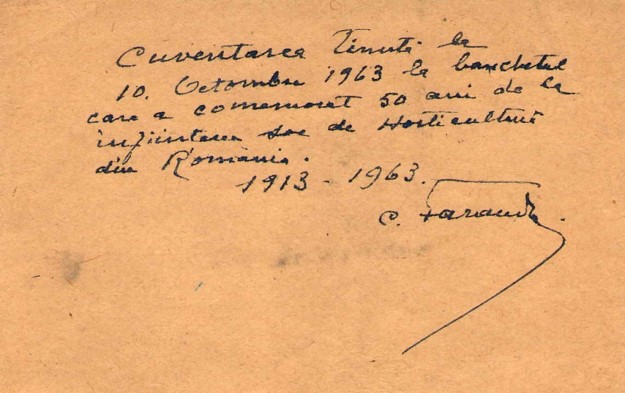 Cuventarea ținută la
10. Octombrie 1963 la banchetul
care a comemorat 50 ani de la
înființarea Soc de Horticultură
din România.
1913 - 1963.
C.